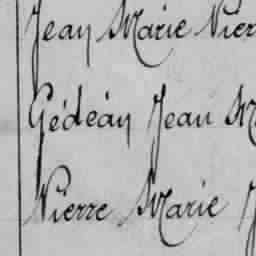 Jean Marie Pier
Gédéon Jean M
Pierre Marie J